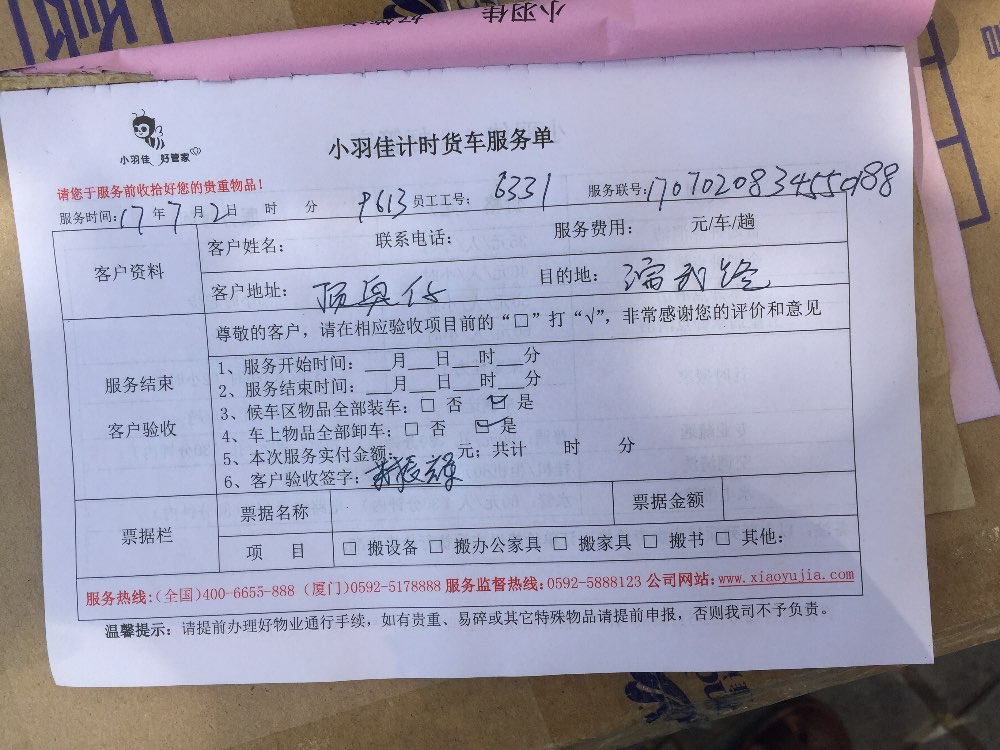 小羽佳
小羽佳 好管家
小羽佳计时货车服务单
请您于服务前收拾好您的贵重物品！
服务时间：17年7月2日 时 分 9613 员工工号：6331 服务联号：
客户资料
客户姓名： 联系电话： 服务费用： 元/车/趟
客户地址： 目的地：
尊敬的客户，请在相应验收项目前的“□”打“√”，非常感谢您的评价和意见
服务结束
客户验收
1、服务开始时间：___月___日___时___分
2、服务结束时间：___月___日___时___分
3、候车区物品全部装车：□ 否 ☑ 是
4、车上物品全部卸车：□ 否 ☑ 是
5、本次服务实付金额： 元；共计 时 分
6、客户验收签字：
票据栏
票据名称 票据金额
项 目 □ 搬设备 □ 搬办公家具 □ 搬家具 □ 搬书 □ 其他：
服务热线：(全国)400-6655-888 (厦门)0592-5178888 服务监督热线：0592-5888123 公司网站：www.xiaoyujia.com
温馨提示：请提前办理好物业通行手续，如有贵重、易碎或其它特殊物品请提前申报，否则我司不予负责。